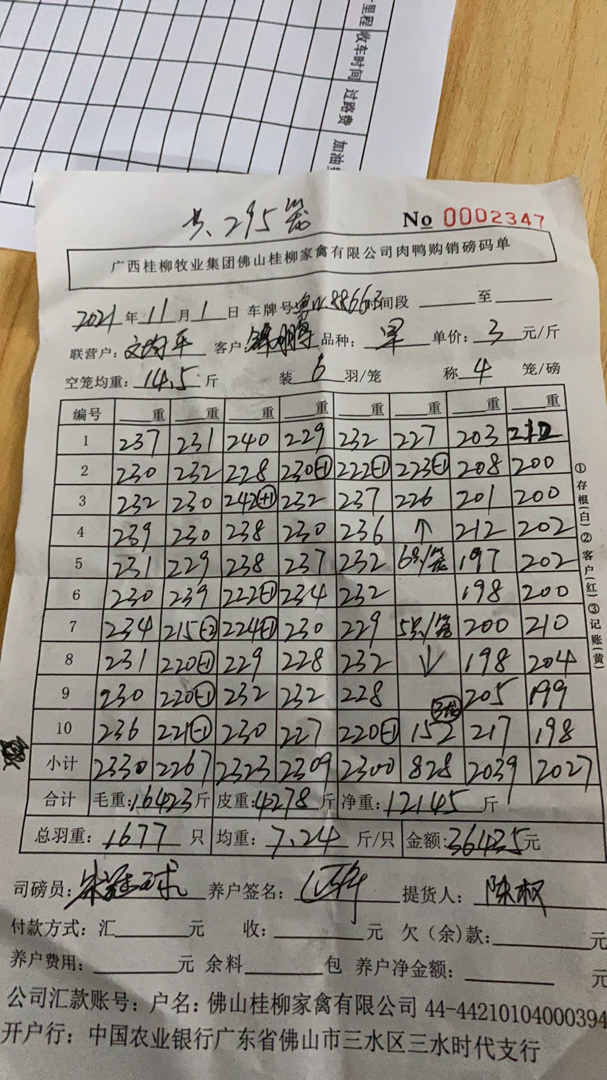 里程
收车时间
过路费
加油
共295笼
No 0002347
广西桂柳牧业集团佛山桂柳家禽有限公司肉鸭购销磅码单
2021年11月1日 车牌号 时间段 至
联营户: 平 客户: 鹏 品种: 单价: 3 元/斤
空笼均重: 14.5 斤 装 6 羽/笼 称 4 笼/磅
编号 重 重 重 重 重 重 重 重
1 237 231 240 229 232 227 203
2 230 232 228 230 -1 222 -1 223 -1 208 200
3 232 230 242 +1 232 237 226 201 200
4 239 230 238 230 236 ↑ 212 202
5 231 229 238 237 232 6只/笼 197 202
6 230 239 222 -1 234 232 198 200
7 234 215 -2 224 -1 230 229 5只/笼 200 210
8 231 220 -1 229 228 232 ↓ 198 204
9 230 220 -1 232 232 228 205 199
10 236 221 -1 230 227 220 -1 152 217 198
小计 2330 2267 2323 2309 2300 828 2039 2027
合计 毛重: 16423 斤 皮重: 4278 斤 净重: 12145 斤
总羽重: 1677 只 均重: 7.24 斤/只 金额: 36435 元
司磅员: 球 养户签名: 提货人: 陈权
付款方式: 汇 元 收: 元 欠(余)款: 元
养户费用: 元 余料 包 养户净金额: 元
公司汇款账号: 户名: 佛山桂柳家禽有限公司 44-44210104000394
开户行: 中国农业银行广东省佛山市三水区三水时代支行
①存根(白)②客户(红)③记账(黄)